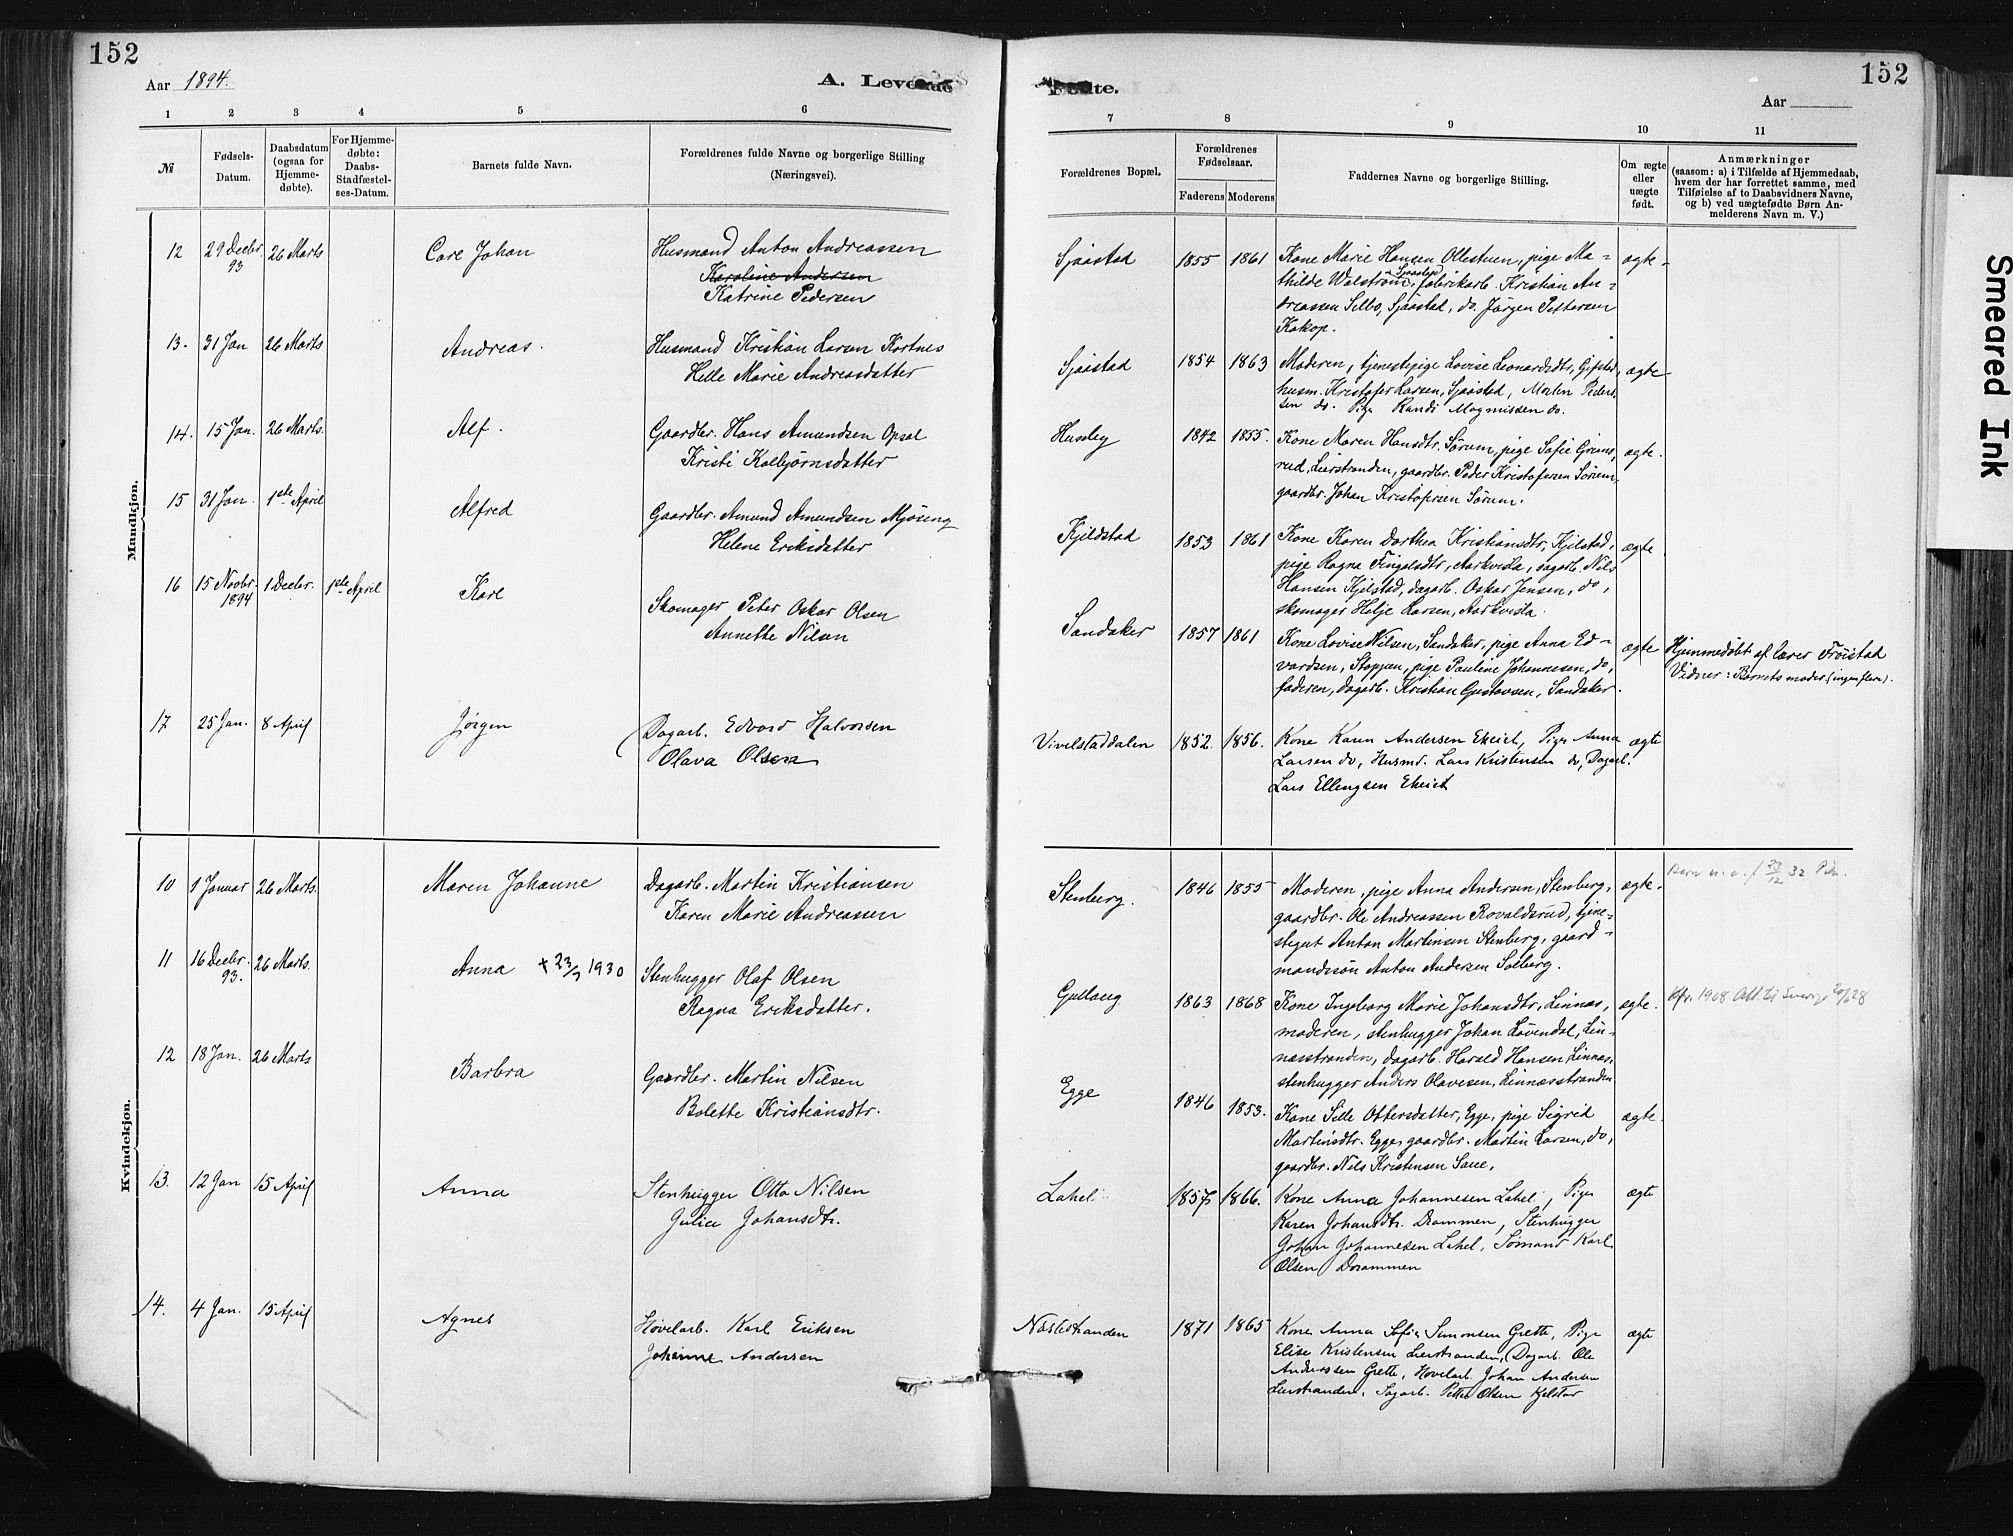 152
Aar 1894.
A. Levende
1 2 3 4 5 6
№
Fødsels-
Datum.
Daabsdatum
(ogsaa for
Hjemme-
døbte).
For Hjemme-
døbte:
Daabs-
Stadfæstel-
ses-Datum.
Barnets fulde Navn.
Forældrenes fulde Navne og borgerlige Stilling
(Næringsvei).
Mandkjøn.
12 29 Decbr. 26 Marts Carl Johan Husmand Anton Andreassen
93
Karoline Andersen
Katrine Pedersen
13. 31 Jan 26 Marts Andreas. Husmand Kristian Larsen Kortnes
Helle Marie Andreasdatter
14. 15 Jan. 26 Marts. Alf. Gaardbr. Hans Amundsen Opsal
Kristi Kolbjørnsdatter
15 31 Jan. 1ste April Alfred Gaardbr. Amund Amundsen Mjøseng
Helene Eriksdatter
16 15 Novbr. 1 Decbr. 1ste April Karl
1894
Skomager Peter Oskar Olsen
Annette Nilsen
17 25 Jan. 8 April Jörgen Dagarb. Edvard Halvorsen
Olava Olsen
Kvindekjøn.
10 1 Januar 26 Marts. Maren Johanne Dagarb. Martin Kristiansen
Karen Marie Andreassen
11 16 Decbr. 26 Marts. Anna + 23/7 1930 Stenhugger Olaf Olsen
93.
Ragna Eriksdatter.
12 18 Jan. 26 Marts Barbra Gaardbr. Martin Nilsen
Bolette Kristiansdtr.
13. 12 Jan 15 April Anna Stenhugger Otto Nilsen
Julie Johansdtr.
14. 4 Jan. 15 April Agnes Høvelarb. Karl Eriksen
Johanne Andersen
152
Fødte.
Aar
7 8 9 10 11
Forældrenes Bopæl.
Forældrenes
Fødselsaar.
Faderens Moderens
Faddernes Navne og borgerlige Stilling.
Om ægte
eller
uægte
født.
Anmærkninger
(saasom: a) i Tilfælde af Hjemmedaab,
hvem der har forrettet samme, med
Tilføielse af to Daabsvidners Navne,
og b) ved uægtefødte Børn An-
melderens Navn m. V.)
Sjaastad 1855 1861 Kone Marie Hansen Ollestuen, pige Ma- ægte.
Sjaastad
thilde Walström, fabrikarb. Kristian An-
dreassen Selbo, Sjaastad, do. Jørgen Pettersen
Kakop.
Sjaastad 1854 1863 Moderen, tjenestepige Lovise Leonardsdtr, Gifstad, ægte
husm. Kristofer Larsen, Sjaastad, Morten Peder-
sen do. Pige Randi Magnussen do.
Huseby 1842 1855. Kone Maren Hansdtr. Sørum, pige Sofie Grøns- ægte.
rud, Lierstranden, gaardbr. Peder Kristofersen Sørum,
gaardbr. Johan Kristofersen Sørum.
Kjeldstad 1853 1861 Kone Karen Dorthea Kristiansdtr, Kjelstad, ægte
pige Ragna Fingalsdtr, Aarkvisla, sagarb. Nils
Hansen Kjelstad, dagarb. Oskar Jensen, do,
skomager Helje Larsen, Aarkvisla.
Sandaker 1857 1861 Kone Lovise Nilsen, Sandaker, pige Anna Ed- ægte Hjemmedøbt af lærer Frøistad
vardsen, Stoppen, pige Pauline Johannesen, do, Vidner: Barnets moder (ingen flere).
faderen, dagarb. Kristian Gustavsen, Sandaker.
Vivelstaddalen 1852. 1856. Kone Karen Andersen Ekeiet, Pige Anna ægte
Larsen do, Husmd. Lars Kristensen do, Dagarb.
Lars Ellengsen Ekeiet
Stenberg. 1846 1855 Moderen, pige Anna Andersen, Stenberg, ægte.
gaardbr. Ole Andreassen Rovaldsrud, tjene-
stegut Anton Martinsen Stenberg, gaard-
mandssøn Anton Andersen Solberg.
Gullaug 1863 1868 Kone Ingeborg Marie Johansdtr, Linnas, ægte.
moderen, stenhugger Johan Løvendal, Lin-
næsstranden, dagarb. Harald Hansen Linnæs,
stenhugger Anders Olavesen, Linnæsstranden
Egge 1846 1853. Kone Sille Ottersdatter, Egge, pige Sigrid ægte.
Martinsdtr. Egge, gaardbr. Martin Larsen, do,
gaardbr. Nils Kristensen Saue.
Lahel 1857. 1866. Kone Anna Johannesen Lahel, Pige ægte
Karen Johansdtr. Drammen, Stenhugger
Johan Johannesen Lahel, Sømand Karl
Olsen Drammen
Næsbstranden 1871 1865 Kone Anna Sofie Simonsen Grette, Pige ægte
Elise Kristensen Lierstranden, Dagarb. Ole
Andreassen Grette, Høvelarb. Johan Andersen
Lierstranden, Sagarb. Petter Olsen Kjelstad
Smeared Ink